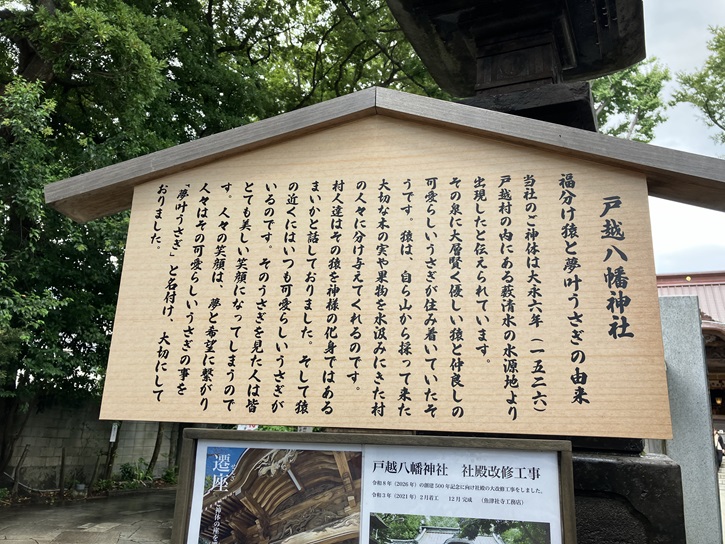 戸越八幡神社
福分け猿と夢叶うさぎの由来
当社のご神体は大永六年（一五二六）
戸越村の内にある薮清水の水源地より
出現したと伝えられています。
その泉に大層賢く優しい猿と仲良しの
可愛らしいうさぎが住み着いていたそ
うです。猿は、自ら山から採って来た
大切な木の実や果物を水汲みにきた村
の人々に分け与えてくれるのです。
村人達はその猿を神様の化身ではある
まいかと話しておりました。そして猿
の近くにはいつも可愛らしいうさぎが
いるのです。そのうさぎを見た人は皆
とても美しい笑顔になってしまうので
す。人々の笑顔は、夢と希望に繋がり
人々はその可愛らしいうさぎの事を
「夢叶うさぎ」と名付け、大切にして
おりました。
遷座
戸越八幡神社 社殿改修工事
令和8年（2026年）の創建500年記念に向け社殿の大改修工事をしました。
令和3年（2021年）2月着工 12月完成 （魚津社寺工務店）